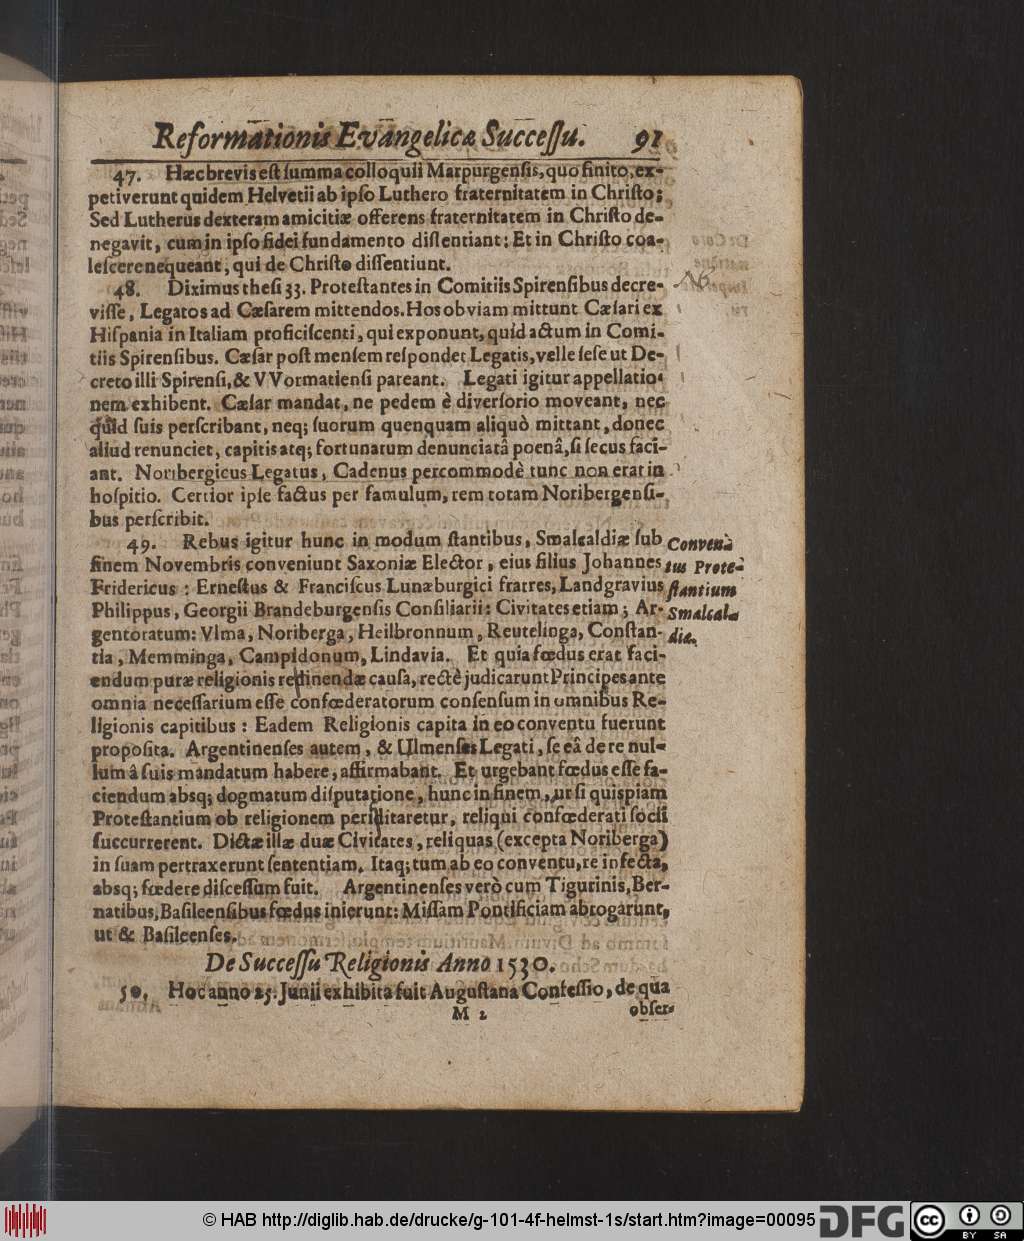 Reformationis Evangelicæ Successu. 91
47. Hæc brevis est summa colloquii Marpurgensis, quo finito, ex-
petiverunt quidem Helvetii ab ipso Luthero fraternitatem in Christo;
Sed Lutherus dexteram amicitiæ offerens fraternitatem in Christo de-
negavit, cum in ipso fidei fundamento dissentiant; Et in Christo coa-
lescere nequeant, qui de Christo dissentiunt.
48. Diximus thesi 33. Protestantes in Comitiis Spirensibus decre-
visse, Legatos ad Cæsarem mittendos. Hos obviam mittunt Cæsari ex
Hispania in Italiam proficiscenti, qui exponunt, quid actum in Comi-
tiis Spirensibus. Cæsar post mensem respondet Legatis, velle sese ut De-
creto illi Spirensi, & VVormatiensi pareant. Legati igitur appellatio-
nem exhibent. Cæsar mandat, ne pedem è diversorio moveant, nec
quid suis perscribant, neq; suorum quenquam aliquò mittant, donec
aliud renunciet, capitis atq; fortunarum denunciatâ poenâ, si secus faci-
ant. Noribergicus Legatus, Cadenus percommodè tunc non erat in
hospitio. Certior ipse factus per famulum, rem totam Noribergensi-
bus perscribit.
49. Rebus igitur hunc in modum stantibus, Smalcaldiæ sub
finem Novembris conveniunt Saxoniæ Elector, ejus filius Johannes
Fridericus: Ernestus & Franciscus Lunæburgici fratres, Landgravius
Philippus, Georgii Brandeburgensis Consiliarii: Civitates etiam; Ar-
gentoratum: Vlma, Noriberga, Heilbronnum, Reutelinga, Constan-
tia, Memminga, Campidonum, Lindavia. Et quia fœdus erat faci-
endum puræ religionis retinendæ causa, rectè judicarunt Principes ante
omnia necessarium esse confœderatorum consensum in omnibus Re-
ligionis capitibus: Eadem Religionis capita in eo conventu fuerunt
proposita. Argentinenses autem, & Ulmenses Legati, se eâ de re nul-
lum â suis mandatum habere, affirmabant. Et urgebant fœdus esse fa-
ciendum absq; dogmatum disputatione, hunc in finem, ut si quispiam
Protestantium ob religionem periclitaretur, reliqui confœderati socii
succurrerent. Dictæ illæ duæ Civitates, reliquas (excepta Noriberga)
in suam pertraxerunt sententiam. Itaq; tum ab eo conventu, re infecta,
absq; fœdere discessum fuit. Argentinenses verò cum Tigurinis, Ber-
natibus, Basileensibus fœdus inierunt: Missam Pontificiam abrogarunt,
ut & Basileenses.
Conven-
tus Prote-
stantium
Smalcal-
diæ.
De Successu Religionis Anno 1530.
50. Hoc anno 25. Junii exhibita fuit Augustana Confessio, de qua
M 2 obser-
© HAB http://diglib.hab.de/drucke/g-101-4f-helmst-1s/start.htm?image=00095
DFG
cc BY SA